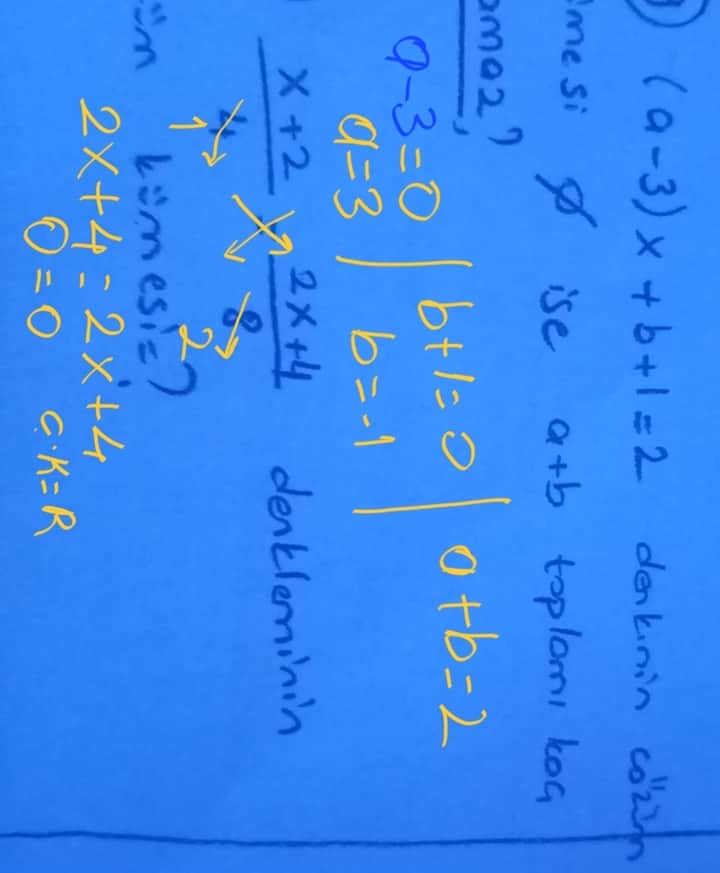 (a-3)x+b+1=2 denk.nin çözüm
mesi ∅ ise a+b toplamı kaç
omaz?
a-3=0 | b+1=0 | a+b=2
a=3 | b=-1
x+2 2x+4 denkleminin
4 8
1 2
üm kümesi=?
2x+4=2x+4
0=0 Ç.K=R